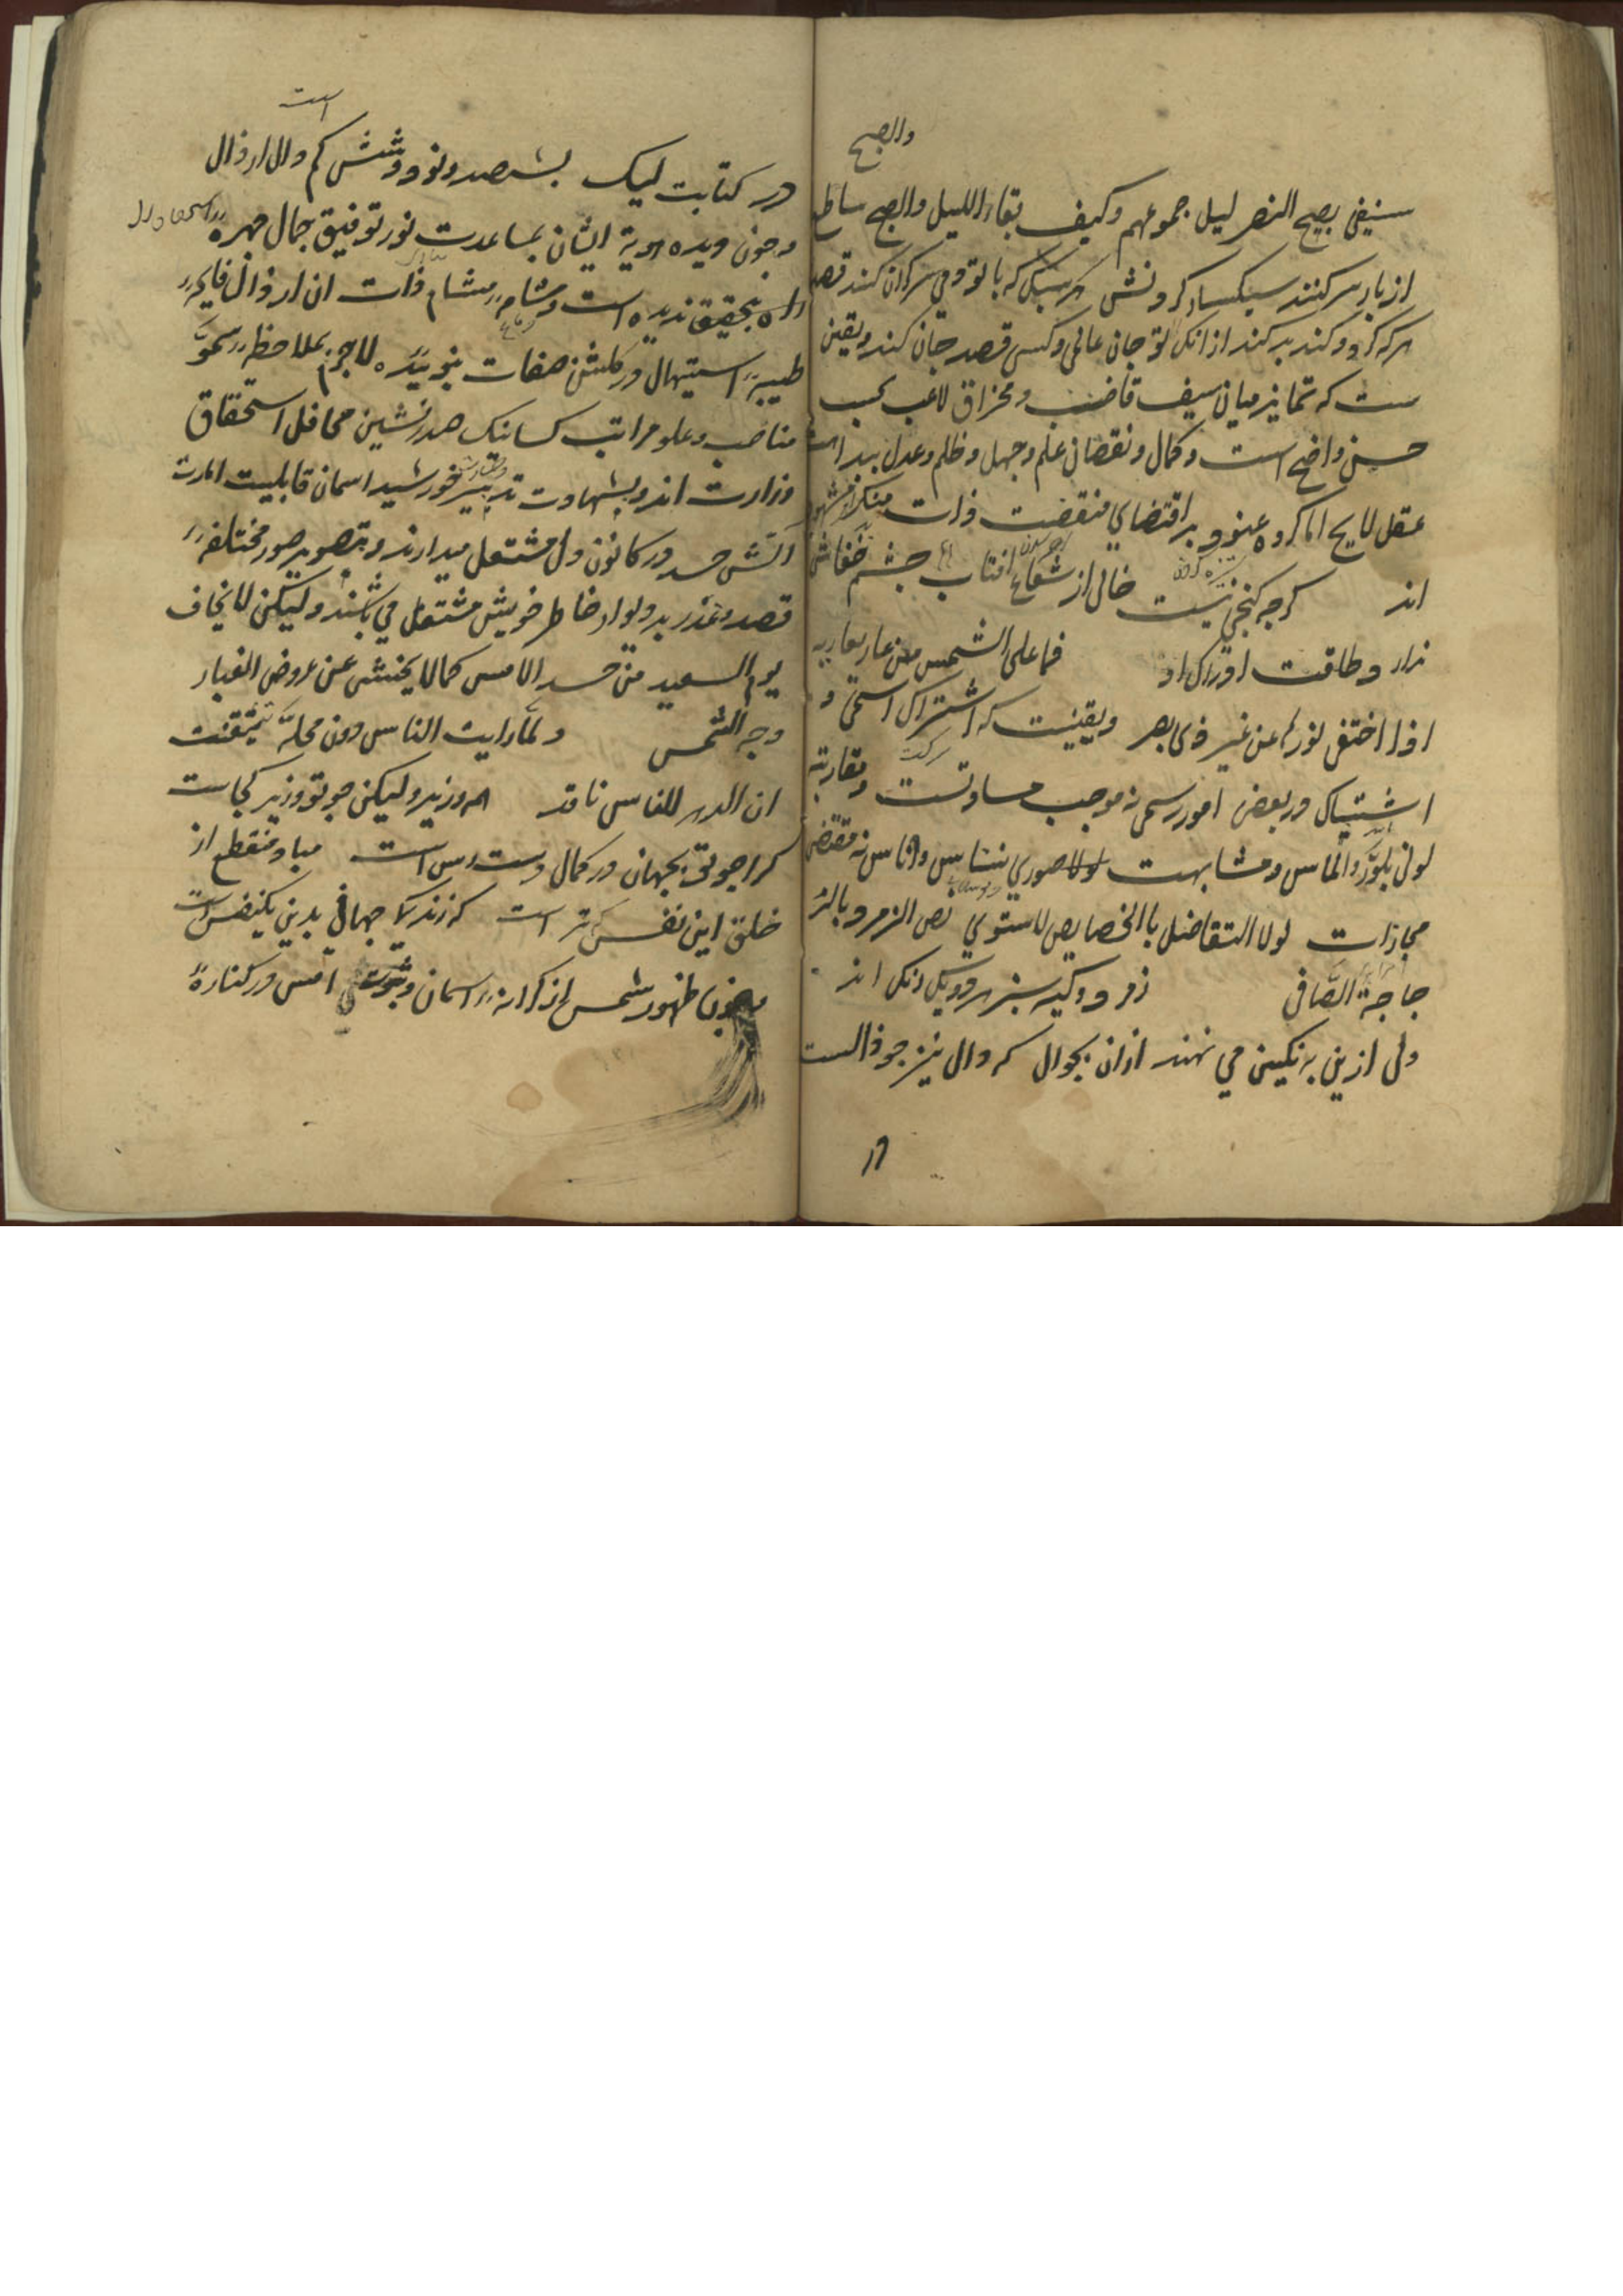 والصبح
سنیفی بصبح النصر لیل جموعهم وکیف بقاء اللیل والصبح ساطع
از بار سر کنند سبکسار کردنش هر سبکی که با تو دمی سر کران کند قصد
هر که کرد و کند بد کند از انک تو جان عالمی و کسی قصد جان کند و یقین
ست که تمایز میان سیف قاضب و مخراق لاعب بحسب
حسن واضح است و کمال و نقصان علم و جهل و ظلم و عدل بیداهت
عقل لایح اما کروه عنود بر اقتضای منقضت ذات منکر
اند کرجه کنجی نیست خالی از شعاع افتاب جشم خفاش
ندارد طاقت ادراک او فما علی الشمس من عار یعاربه
اذا اختفی نورها عن غیر ذی بصر ویقینست که اشتراک اسمی و
اشتباک در بعض امور رسمی نه موجب مساواتست و مقاربة
لونی بلور و الماس و مشابهت صوری نسناس و اناس نه مقتضی
مجازات لولا التفاضل باالخصایص لاستوی نص الزمرد بالز
جاجة الصافی زمرد و کیه سبز هر دو یک رنک اند
ولی ازین به نکین می نهند ازان بجوال که دال نیز جو ذالست
در کتابت لیک بششصد و نود و شش کم دال از ذال
است
و جون دیده هویة ایشان بمساعدت نور توفیق جمال جهره
راه بتحقیق ندیده است و مشام ذات ان ارذال فایحه
طیبه استیهال در کلشن صفات نبوییده لاجرم بملاحظه سمو
مناصب و علو مراتب کسانیک صدرنشین محافل استحقاق
وزارت اند و بشهادت تدبیر خورشید اسمان قابلیت امارت
اتش حسد در کانون دل مشتعل میدارند و بتصویر صور مختلفه
قصد و غدر بر ولواد خاطر خویش مشتعل می باشند و لیکن لا یخاف
یوم السعید من حسد الامس کما لا یخشی عن عروض الغبار
وجه الشمس و لما رایت الناس دون محله تیقنت
ان الدهر للناس ناقد وزیرند و لیکن جو تو وزیر کجاست
کرا جو تو بجهان در کمال دست رس است مباد منقطع از
خلق این نفس که زنده جهانی بدین یکنفس است
ظهور شمس از کرانه اسمان و ثبوت امس در کناره